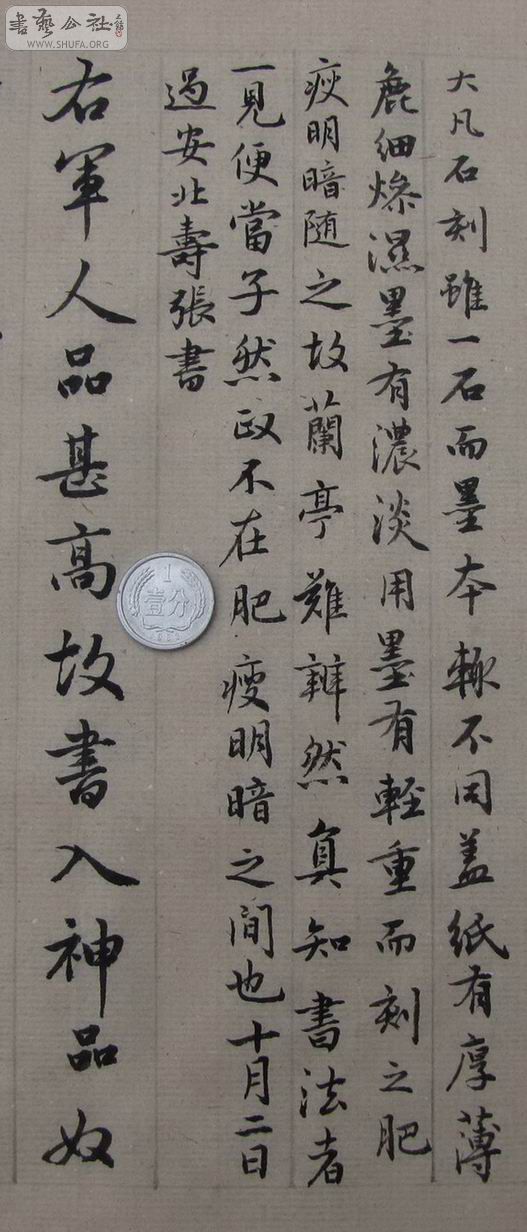 書藝公社
WWW.SHUFA.ORG
大凡石刻雖一石而墨本輙不同盖紙有厚薄
麁細燥濕墨有濃淡用墨有輕重而刻之肥
瘐明暗随之故蘭亭難辨然真知書法者
一見便當了然政不在肥瘦明暗之間也十月二日
過安北壽張書
右軍人品甚高故書入神品奴
1
壹分